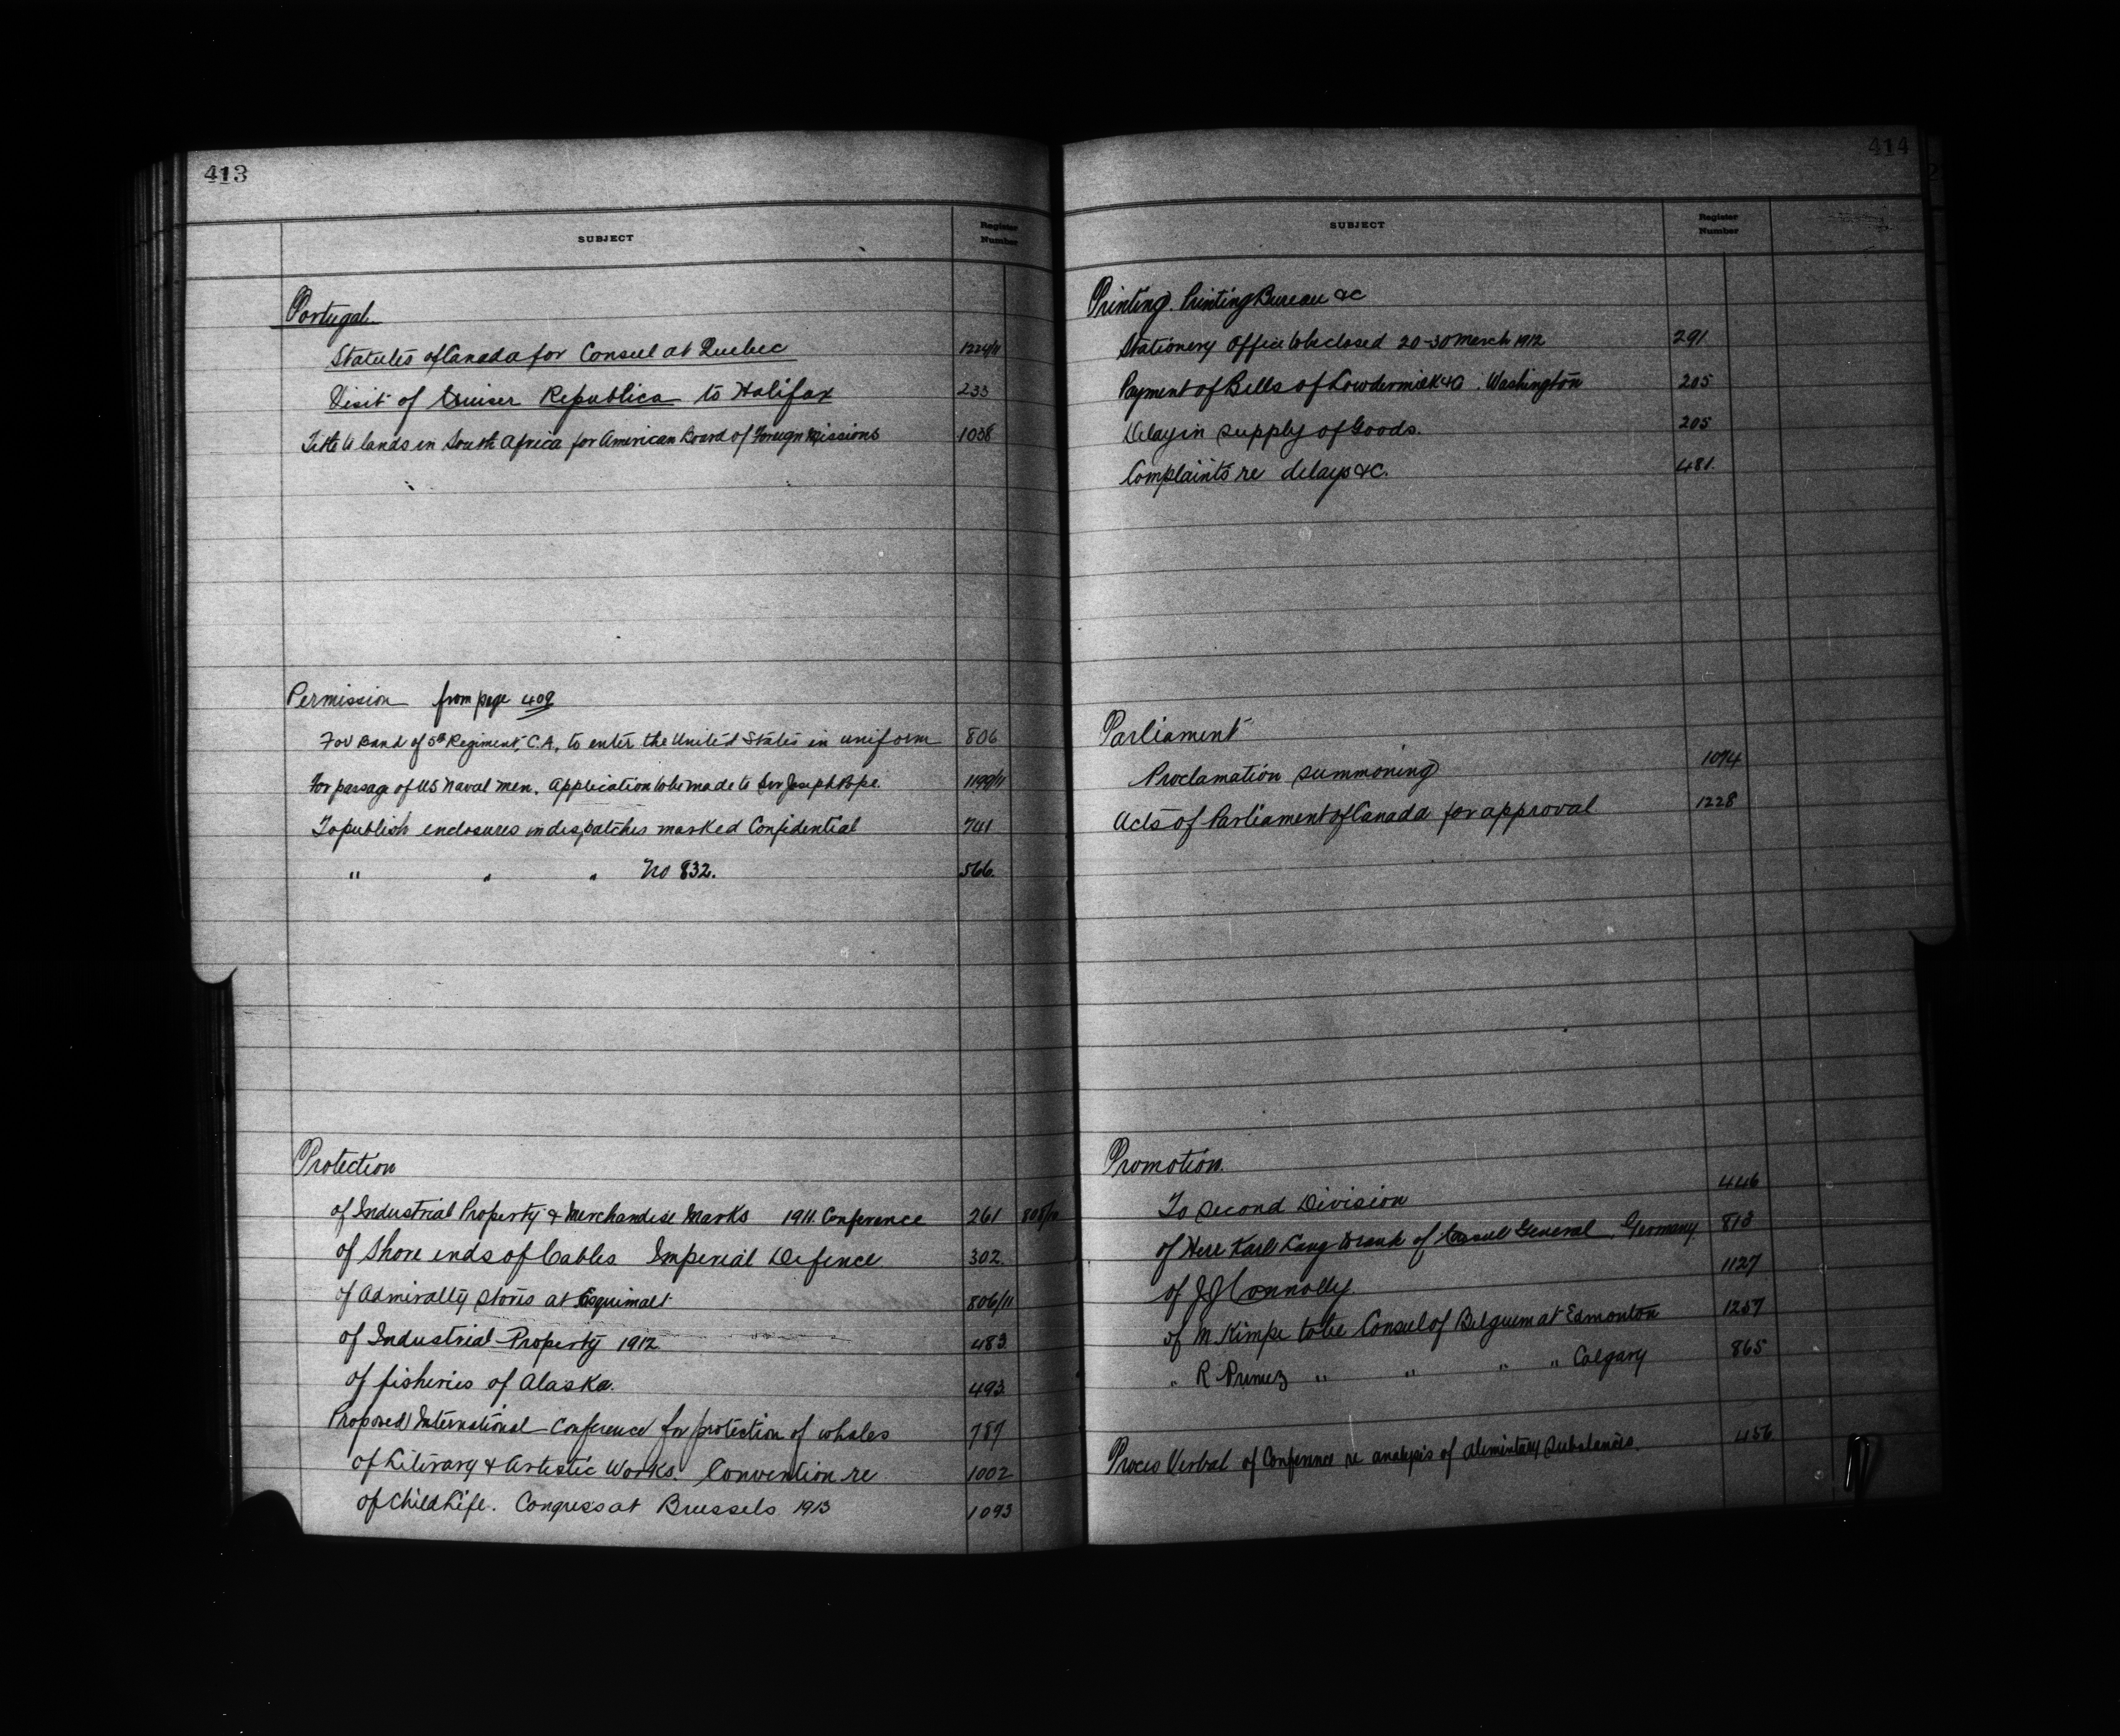 413
SUBJECT
Register Number
Portugal
Statutes of Canada for Consul at Quebec 1224/11
Visit of Cruiser Republica to Halifax 233
Title to lands in South Africa for American Board of Foreign Missions 1038
Permission from page 409
For Band of 5th Regiment, C.A. to enter the United States in uniform 806
For passage of US Naval men. Application to be made to Sir Joseph Pope. 1199/11
To publish enclosures in despatches marked Confidential 741
" " " No 832. 566.
Protection
of Industrial Property & Merchandise Marks 1911. Conference 261
of Shore ends of Cables Imperial Defence 302.
of Admiralty stores at Esquimalt 806/11
of Industrial Property 1912. 483
of fisheries of Alaska. 493
Proposed International Conference for protection of whales 787
of Literary & Artistic Works. Convention re 1002
of Child Life. Congress at Brussels 1913 1093
414
SUBJECT
Register Number
Printing. Printing Bureau &c
Stationery Office to be closed 20-30 March 1912 291
Payment of Bills of Lowdermilk & Co. Washington 205
Delay in supply of Goods. 205
Complaints re delays &c. 481.
Parliament
Proclamation summoning 1074
Acts of Parliament of Canada for approval 1228
Promotion.
To Second Division 446
of Herr Karl Lang to rank of Consul General, Germany 813
of J J Connolly. 1127
of M. Kimpe to be Consul of Belguim at Edmonton 1257
" R " " " Calgary 865
Proces Verbal of Conference re analysis of alimentary substances. 456